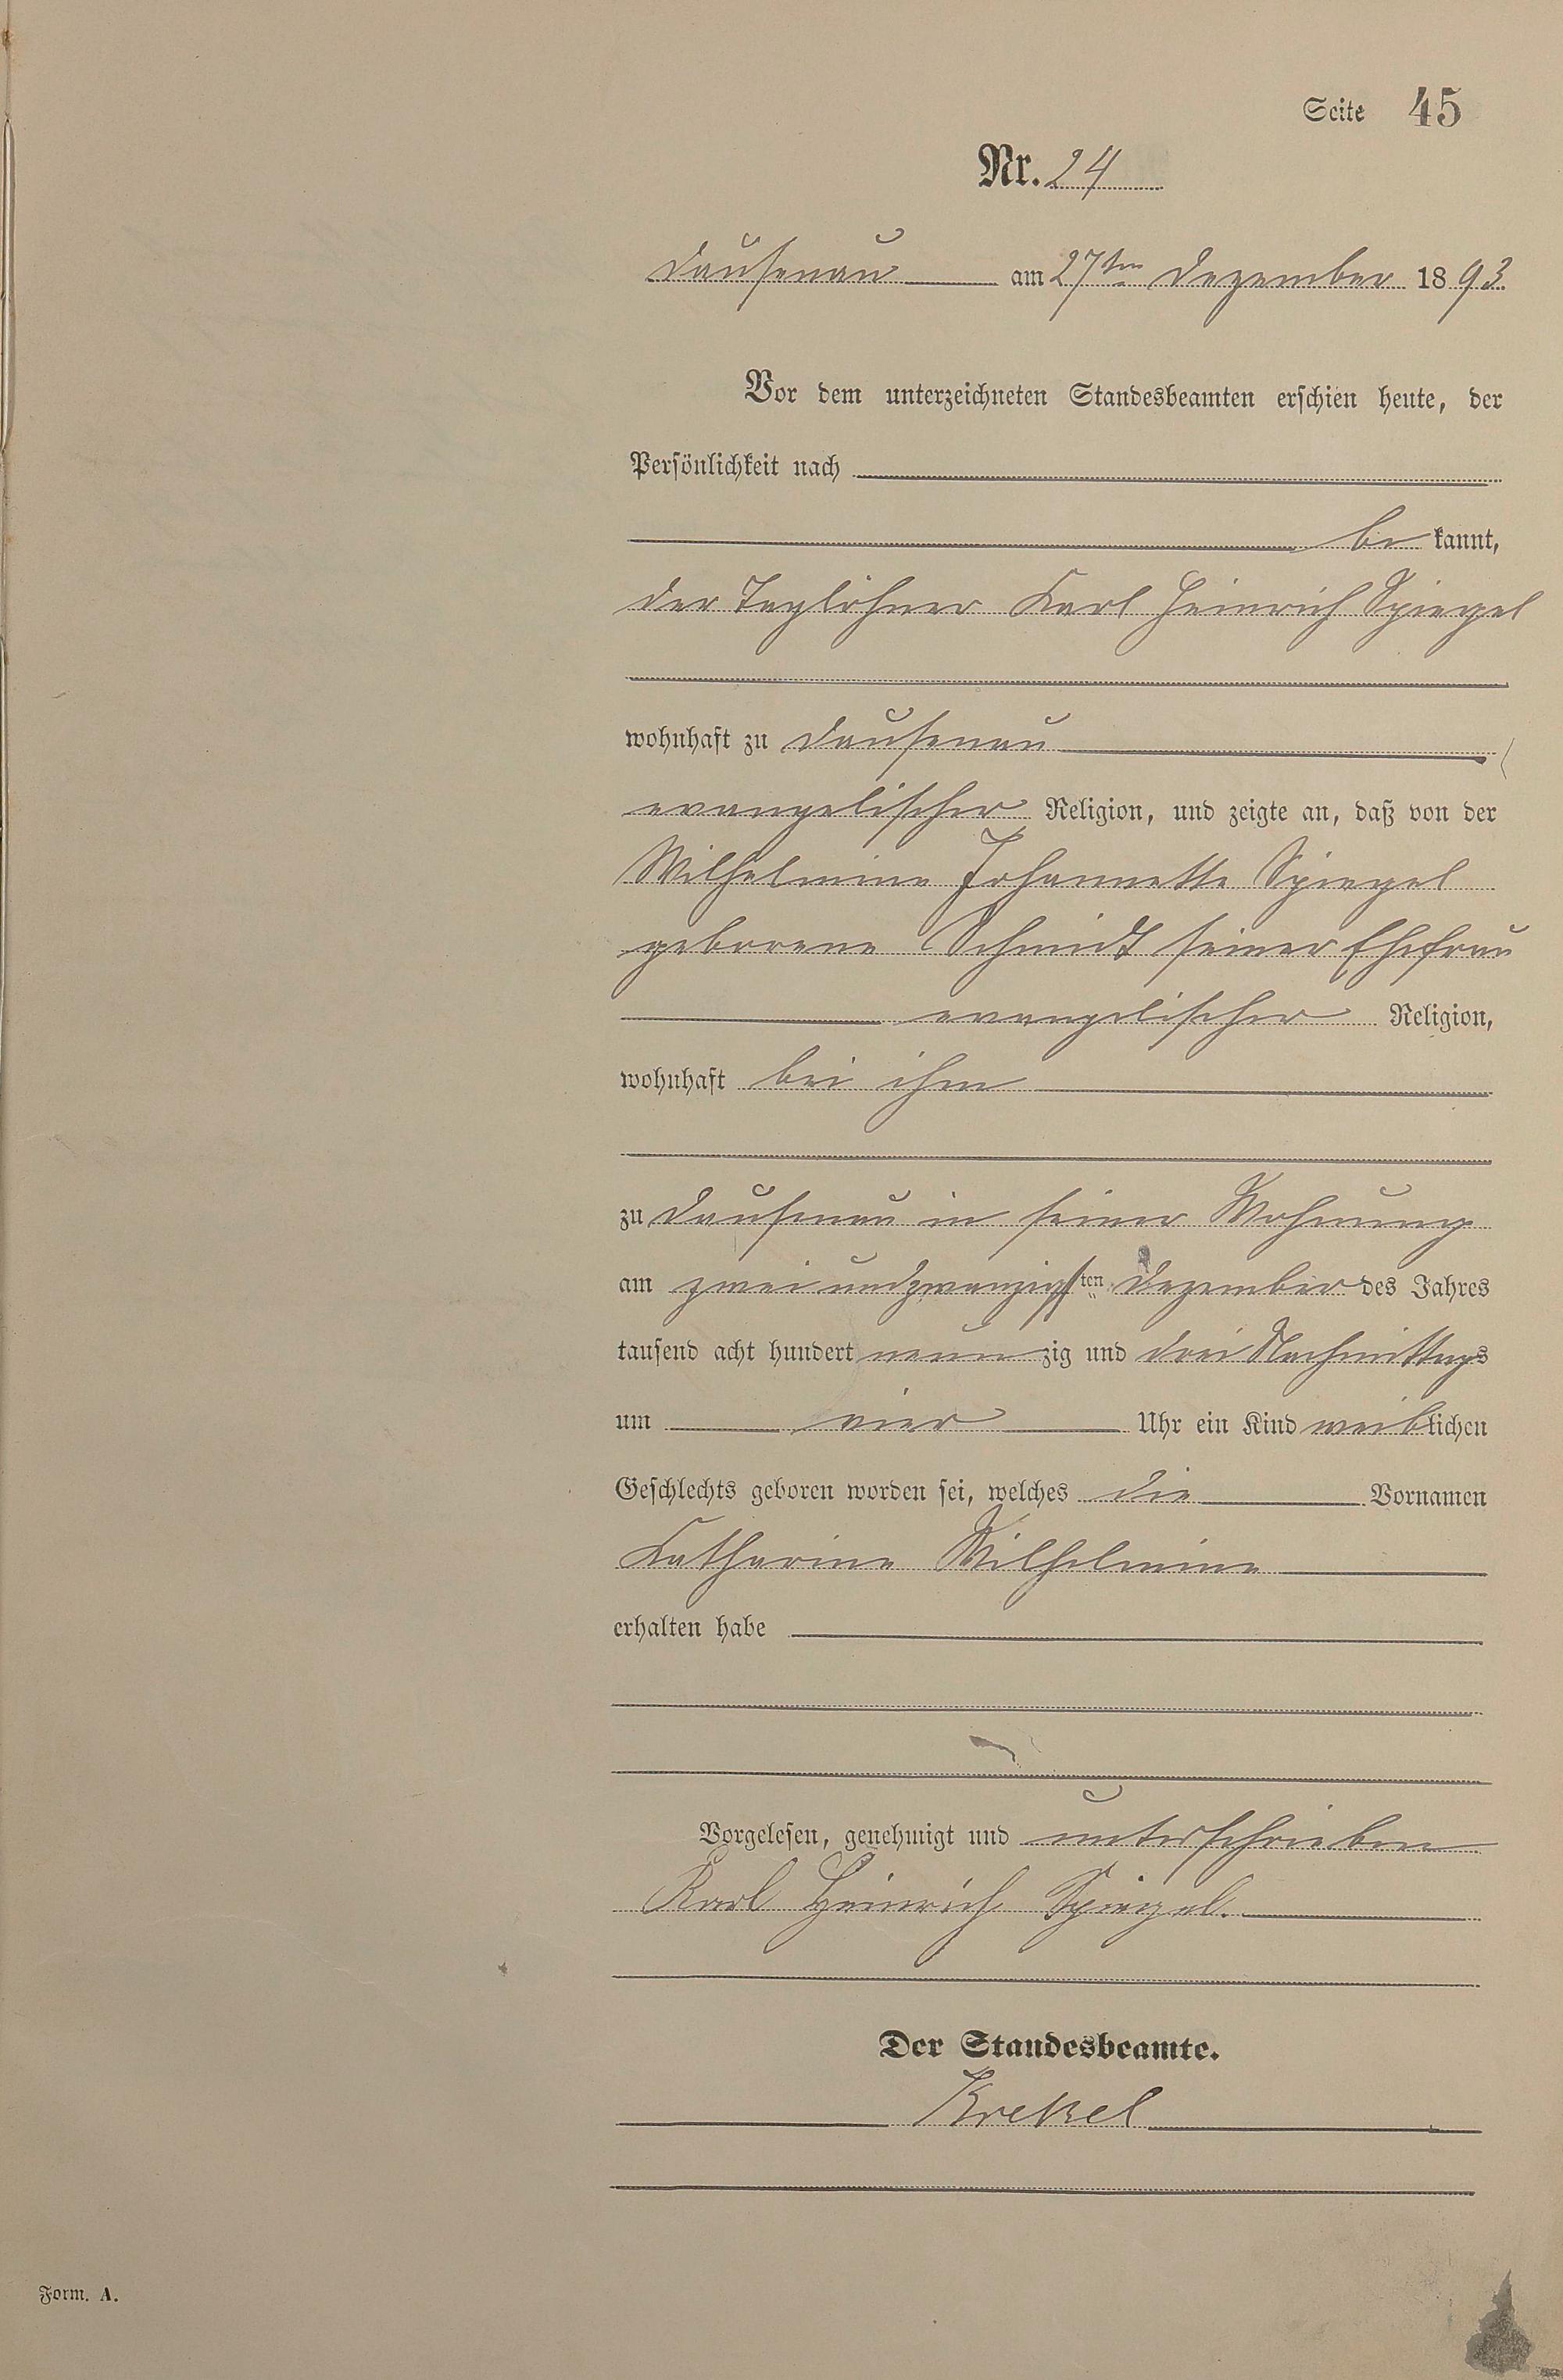 Seite 45
Nr. 24
Dausenau am 27ten Dezember 1893.
Vor dem unterzeichneten Standesbeamten erschien heute, der
Persönlichkeit nach
be kannt,
der Taglöhner Karl Heinrich Spiegel
wohnhaft zu Dausenau
evangelischer Religion, und zeigte an, daß von der
Wilhelmine Johannette Spiegel
geborene Schmidt seiner Ehefrau
evangelischer Religion,
wohnhaft bei ihm
zu Dausenau in seiner Wohnung
am zwei und zwanzigsten Dezember des Jahres
tausend acht hundert neunzig und drei Nachmittags
um vier Uhr ein Kind weiblichen
Geschlechts geboren worden sei, welches die Vornamen
Katharine Wilhelmine
erhalten habe
Vorgelesen, genehmigt und unterschrieben
Karl Heinrich Spiegel.
Der Standesbeamte.
Krekel
Form. A.